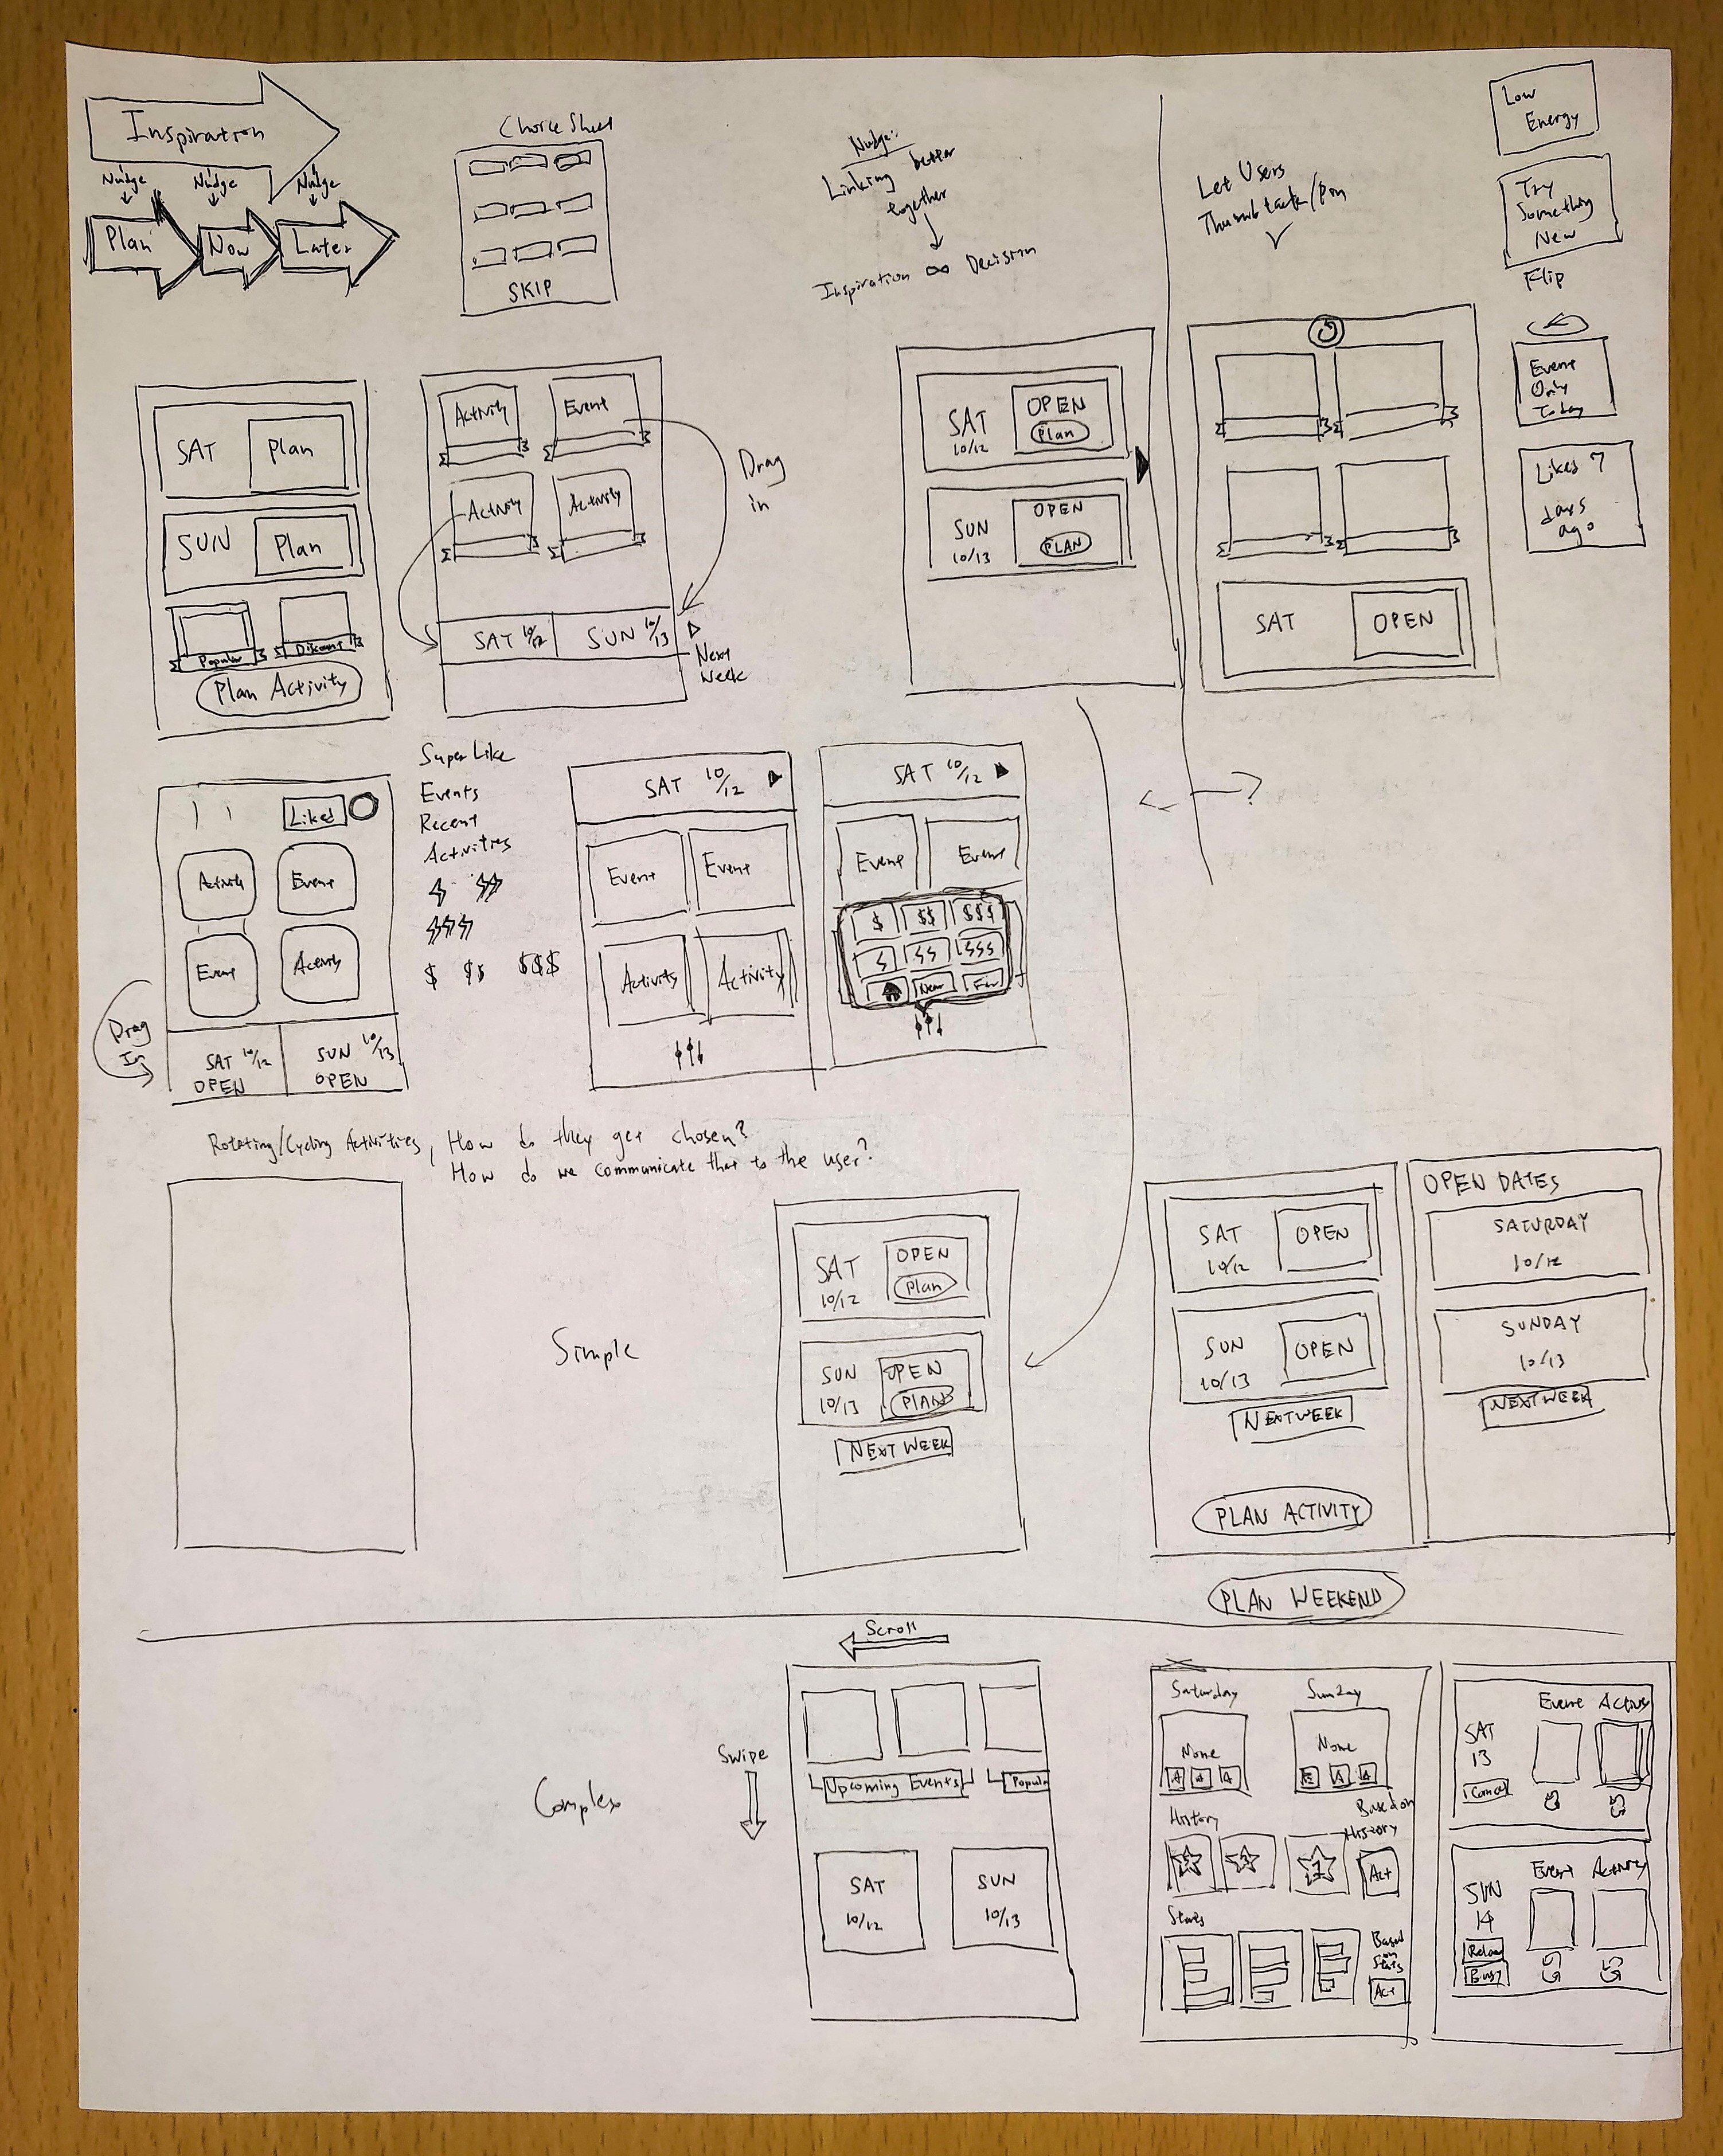 Inspiration
Nudge
Nudge
Nudge
Plan
Now
Later
Choice Sheet
SKIP
Nudge:
Linking better
together
Inspiration ∞ Decision
Let Users
Thumbtack/Pin
Low
Energy
Try
Something
New
Flip
Event
Only
Today
Liked 7
days
ago
SAT
Plan
SUN
Plan
Popular
Discount
Plan Activity
Activity
Event
Activity
Activity
Drag
in
SAT 10/12
SUN 10/13
Next
Week
SAT
10/12
OPEN
Plan
SUN
10/13
OPEN
PLAN
SAT
OPEN
Liked
Activity
Event
Event
Activity
Drag
In
SAT 10/12
OPEN
SUN 10/13
OPEN
Super Like
Events
Recent
Activities
$ $$ $$$
SAT 10/12
Event
Event
Activity
Activity
SAT 10/12
Event
Event
$ $$ $$$
Near
Far
?
Rotating/Cycling Activities, How do they get chosen?
How do we communicate that to the user?
Simple
SAT
10/12
OPEN
Plan
SUN
10/13
OPEN
PLAN
NEXT WEEK
SAT
10/12
OPEN
SUN
10/13
OPEN
NEXT WEEK
PLAN ACTIVITY
OPEN DATES
SATURDAY
10/12
SUNDAY
10/13
NEXT WEEK
PLAN WEEKEND
Complex
Scroll
Swipe
Upcoming Events
Popular
SAT
10/12
SUN
10/13
Saturday
Sunday
None
A A A
None
E A A
History
Based on
History
Act
Stats
Based
on
Stats
Act
Event Activity
SAT
13
Cancel
Event Activity
SUN
14
Relax
Busy